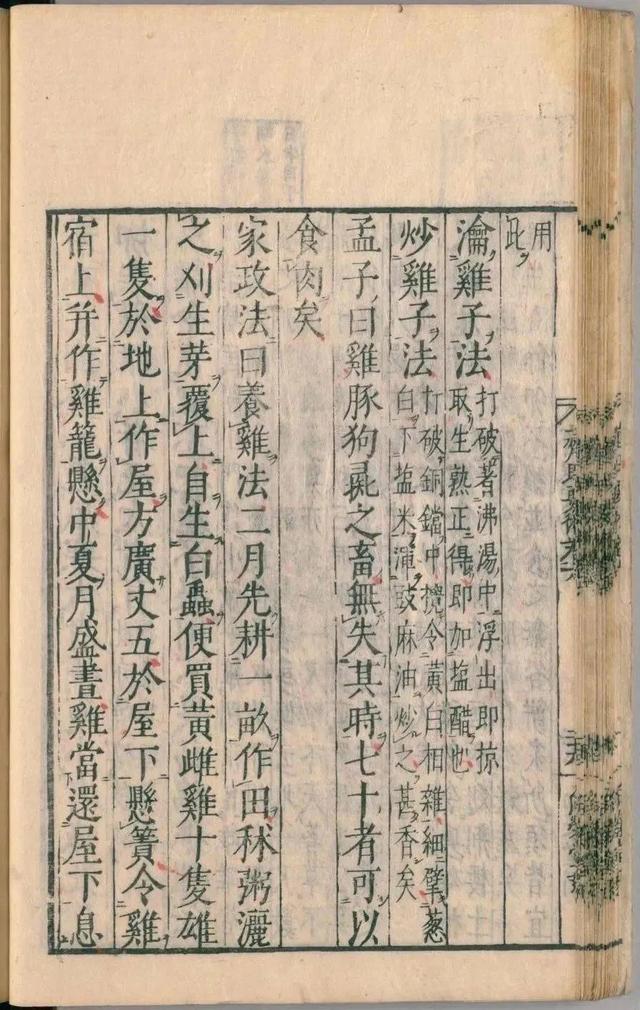 用
此
瀹雞子法打破著沸湯中浮出即掠
取生熟正得即加塩醋也
炒雞子法打破銅鐺中攪令黃白相雜細擘葱
白下塩米渾豉麻油炒之甚香矣
孟子曰雞豚狗彘之畜無失其時七十者可以
食肉矣
家政法曰養雞法二月先耕一畝作田秫粥灑
之刈生茅覆上自生白蟲便買黃雌雞十隻雄
一隻於地上作屋方廣丈五於屋下懸簀令雞
宿上并作雞籠懸中夏月盛晝雞當還屋下息